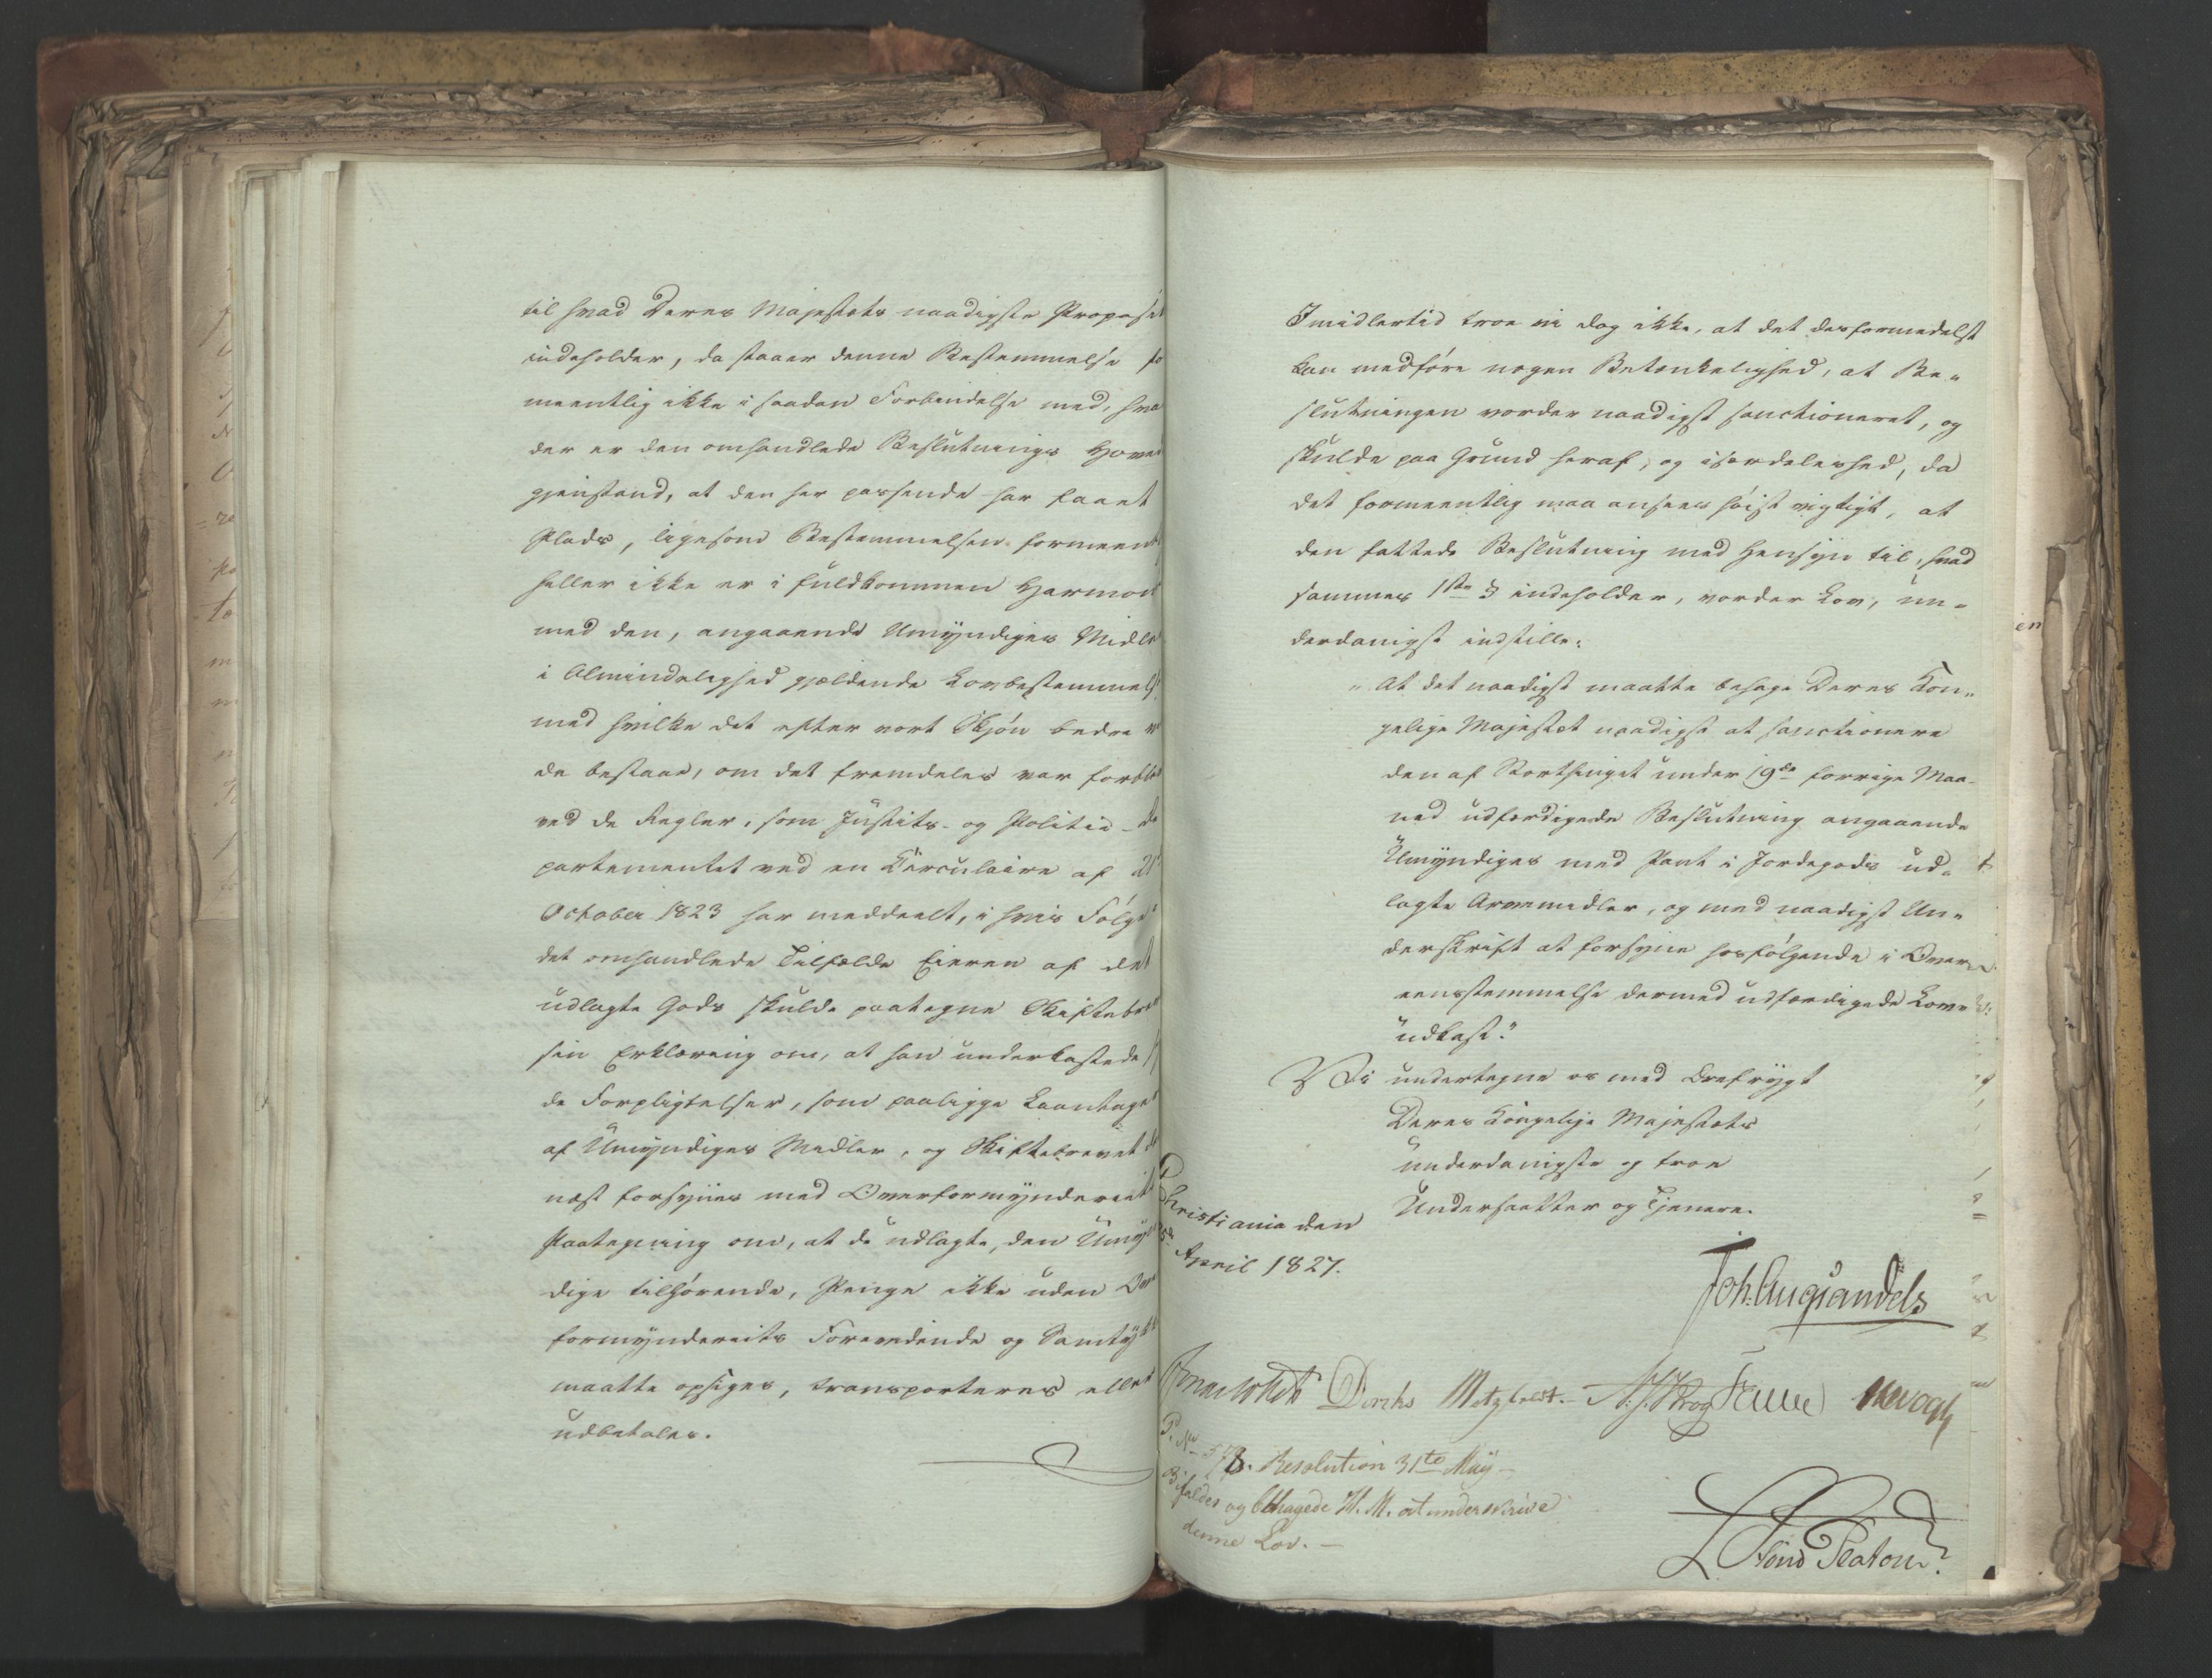 til hvad Deres Majestæts naadigste Proposi
indeholder, da staaer denne Bestemmelse fo
meentlig ikke i saadan Forbindelse med, hva
der er den omhandlede Beslutnings Hoved
gjenstand, at den her passende har faaet
Plads, ligesom Bestemmelsen formeent
heller ikke er i fuldkommen Harmoni
med den, angaaende Umyndiges Midler
i Almindelighed gjældende Lovbestemmels
med hvilke det efter vort Skjön bedre v
de bestaae, om det fremdeles var forble
ved de Regler, som Justits- og Politie-de
partementet ved en Circulaire af 21
October 1823 har meddeelt, i hvis Fölge
det omhandlede Tilfælde Eieren af det
udlagte Gods skulde paategne Skiftebre
sin Erklæring om, at han underkastede s
de Forpligtelser, som paaligge Laantager
af Umyndiges Midler, og Skiftebrevet de
næst forsynes med Overformynderiets
Paategning om, at de udlagte, den Umyn
dige tilhörende, Penge ikke uden Over
formynderiets Forevidende og Samtykke
maatte opsiges, transporteres eller
udbetales.
Imidlertid troe vi dog ikke, at det desformedelst
kan medföre nogen Betænkelighed, at Be-
slutningen vorder naadigst sanctioneret, og
skulde paa Grund heraf, og isærdeleshed, da
det formeentlig maa ansees höist vigtigt, at
den fattede Beslutning med Hensyn til, hvad
sammes 1ste § indeholder, vorder Lov, un-
derdanigst indstille:
"At det naadigst maatte behage Deres Kon-
gelige Majestæt naadigst at sanctionere
den af Storthinget under 19de forrige Maa-
ned udfærdigede Beslutning angaaende
Umyndiges med Pant i Jordegods ud-
lagte Arvemidler, og med naadigst Un-
derskrift at forsyne hosfölgende i Over-
eensstemmelse dermed udfærdigede Lov-
udkast."
Vi undertegne os med Ærefrygt
Deres Kongelige Majestæts
underdanigste og troe
Undersaatter og Tjenere.
Christiania den
5te April 1827.
Joh. Aug. Sandels
Diriks Motzfeldt. Krog Fasting
Resolution 31te May
Bifaldes og behagede H. M. at underskrive
denne Lov. —